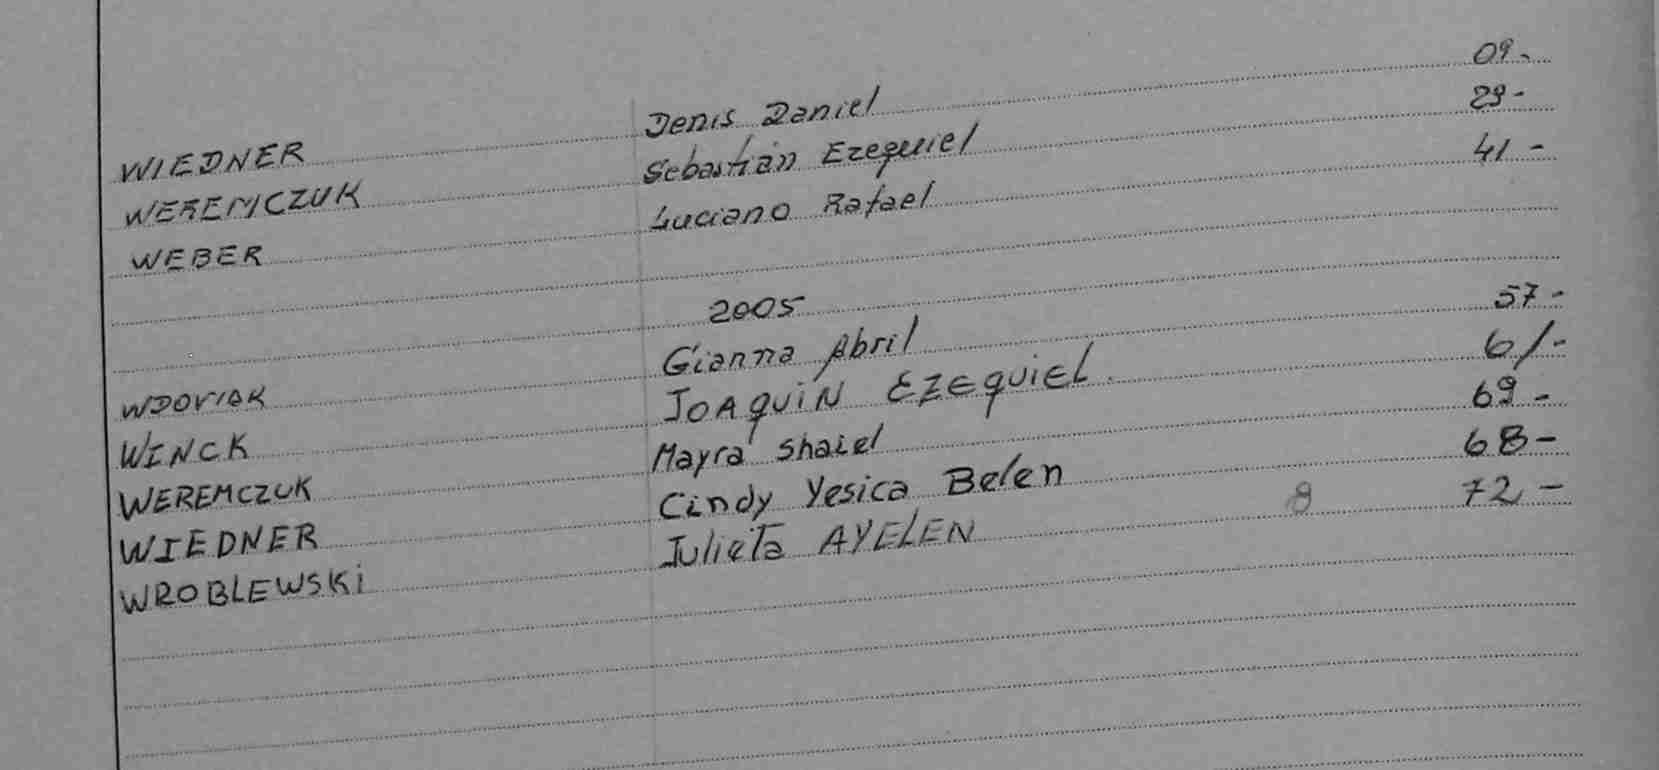 WIEDNER Denis Daniel 09-
WEREMCZUK Sebastián Ezequiel 29-
WEBER Luciano Rafael 41-
2005
WDOVIAK Gianna Abril 57-
WINCK JOAquiN EZEquiEL. 61-
WEREMCZUK Mayra Shaiel 69-
WIEDNER Cindy Yesica Belen 68-
WROBLEWSKi JulieTa AYELEN 8 72-